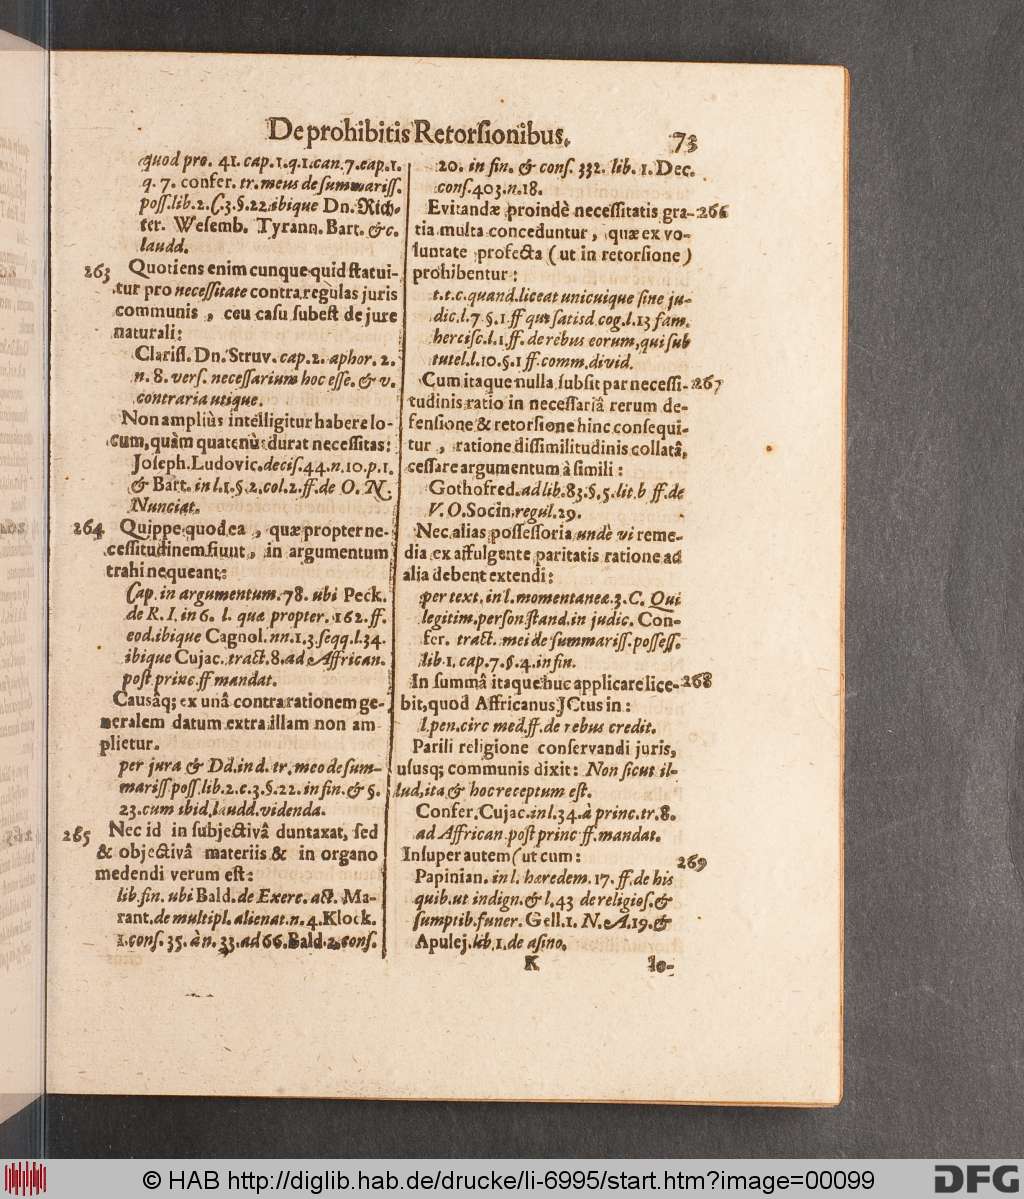 De prohibitis Retorsionibus.
73
quod pro. 41. cap. 1. q. 1. can. 7. cap. 1.
q. 7. confer. tr. meus de summariss.
poss. lib. 2. C. 3. §. 22. ibique Dn. Rich-
ter. Wesemb. Tyrann. Bart. &c.
laudd.
263 Quotiens enim cunque quid statui-
tur pro necessitate contra regulas juris
communis, ceu casu subest de jure
naturali:
Clariss. Dn. Struv. cap. 2. aphor. 2.
n. 8. vers. necessarium hoc esse. & v.
contraria utique.
Non ampliùs intelligitur habere lo-
cum, quàm quatenùs durat necessitas:
Joseph. Ludovic. decis. 44. n. 10. p. 1.
& Bart. in l. 1. §. 2. col. 2. ff. de O. N.
Nunciat.
264 Quippe quod ea, quæ propter ne-
cessitudinem fiunt, in argumentum
trahi nequeant:
Cap. in argumentum. 78. ubi Peck.
de R. I. in 6. l. quæ propter. 162. ff.
eod. ibique Cagnol. nn. 1. 3. seqq. l. 34.
ibique Cujac. tract. 8. ad Affrican.
post princ. ff mandat.
Causâq; ex unâ contra rationem ge-
neralem datum extra illam non am-
plietur.
per jura & Dd. in d. tr. meo de sum-
mariss. poss. lib. 2. c. 3. §. 22. in fin. & §.
23. cum ibid. laudd. videnda.
265 Nec id in subjectivâ duntaxat, sed
& objectivâ materiis & in organo
medendi verum est:
lib. fin. ubi Bald. de Exerc. act. Ma-
rant. de multipl. alienat. n. 4. Klock.
1. cons. 35. à n. 33. ad 66. Bald. 2. cons.
20. in fin. & cons. 332. lib. 1. Dec.
cons. 403. n. 18.
Evitandæ proindè necessitatis gra- 266
tia multa conceduntur, quæ ex vo-
luntate profecta (ut in retorsione)
prohibentur:
t. t. c. quand. liceat unicuique sine ju-
dic. l. 7 §. 1 ff qui satisd cog. l. 13 fam.
hercisc. l. 1. ff. de rebus eorum, qui sub
tutel. l. 10. §. 1 ff. comm. divid.
Cum itaque nulla subsit par necessi- 267
tudinis ratio in necessariâ rerum de-
fensione & retorsione hinc consequi-
tur, ratione dissimilitudinis collatâ,
cessare argumentum à simili:
Gothofred. ad lib. 83. §. 5. lit. b ff. de
V. O. Socin. regul. 29.
Nec alias possessoria undè vi reme-
dia ex affulgente paritatis ratione ad
alia debent extendi:
per text. in l. momentaneæ. 3. C. Qui
legitim. person stand. in judic. Con-
fer. tract. mei de summariss. possess.
lib 1. cap. 7. §. 4. in fin.
In summâ itaque huc applicare lice- 268
bit, quod Affricanus JCtus in:
l. pen. circ med. ff. de rebus credit.
Parili religione conservandi juris,
ususq; communis dixit: Non sicut il-
lud, ita & hoc receptum est.
Confer. Cujac. in l. 34. à princ. tr. 8.
ad Affrican. post princ ff. mandat.
Insuper autem (ut cum: 269
Papinian. in l. hæredem. 17. ff. de his
quib. ut indign. & l. 43 de religios. &
sumptib. funer. Gell. 1. N. A. 19. &
Apulej. lib. 1. de asino.
K
lo-
© HAB http://diglib.hab.de/drucke/li-6995/start.htm?image=00099
DFG